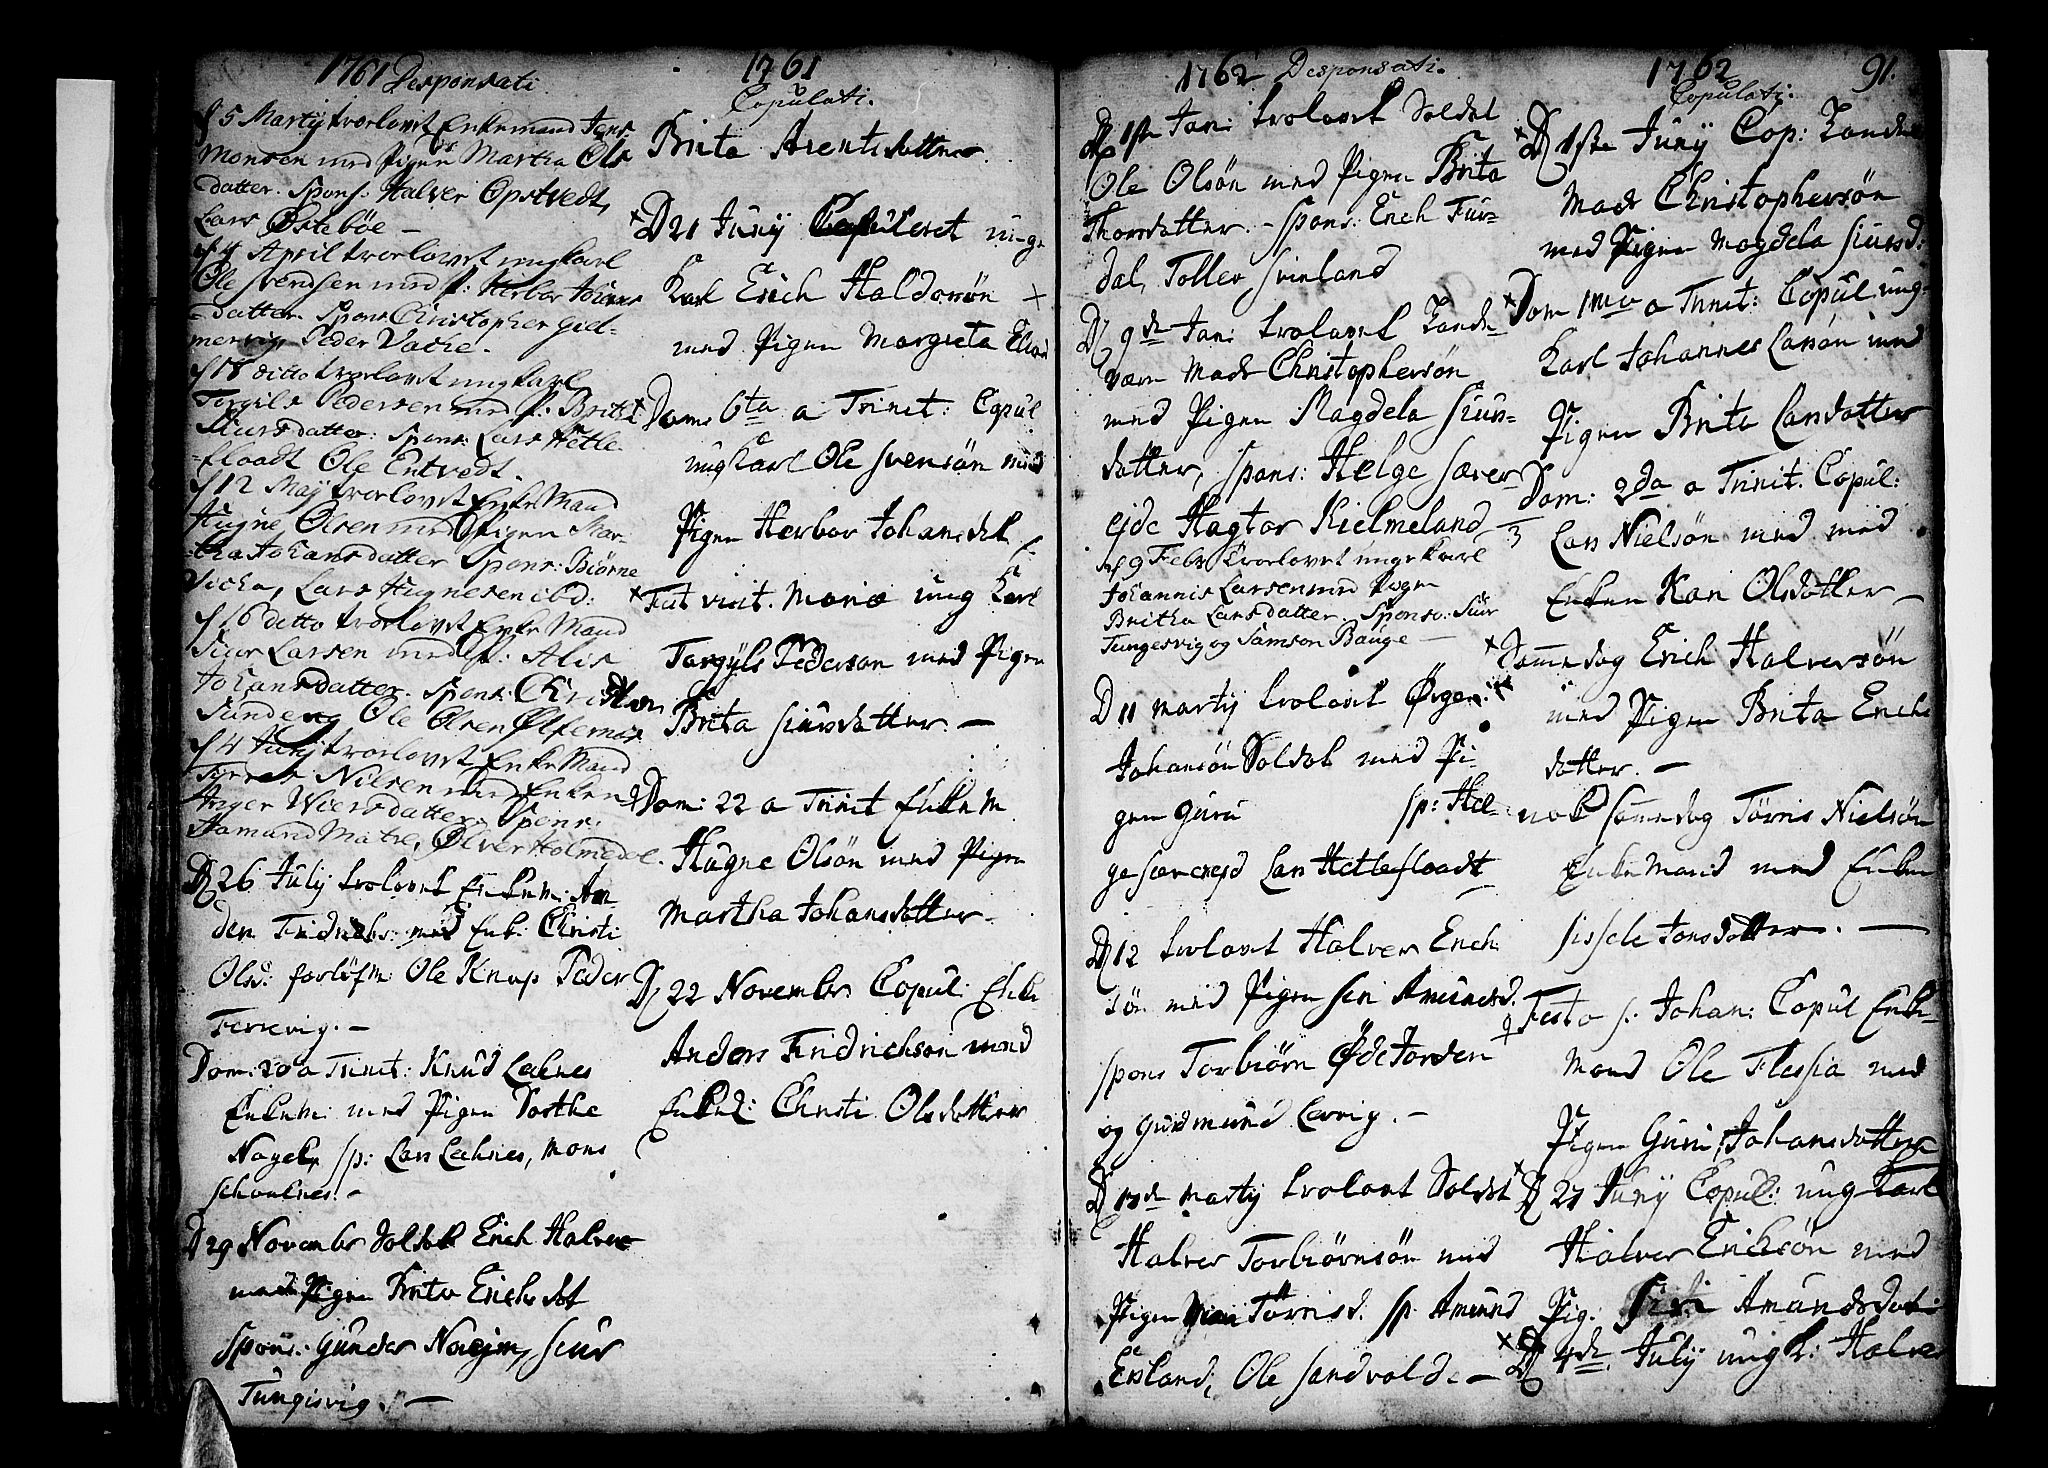 1761 Desponsati
d 5 Martij trorlovet Enkemand Jens
Monsen med Pigen Martha Ols
datter. Spons. Halver Opstvedt,
Lars Østebøe —
d 4 April trorlovet ungkarl
Ole Svendsen med P: Herbor Johans
datter Spons Christopher Giel-
mervig Peder Vathe.
d 18 ditto trorlovet ungkarl
Torgils Pedersen med P: Britha
Siursdatter: Spons: Lars Hetle-
floadt Ole Entvedt.
d 12 Maij trorlovet Enke Mand
Hugne Olsen med Pigen Mar-
tha Johansdatter Spons: Biørne
Vicka, Lars Hugnesen ibd:
d 16 ditto trorlovet Enke Mand
Siur Larsen med P: Alis
Johansdatter. Spons: Christen
Sundeng Ole Olsen Ølfernæs
d 4 Junij trorlovet Enke Mand
Tyrres Nilsen med Enken
Inger Wiersdatter Spons:
Hamund Matre, Ølver Holmedal.
D 26 July trolovet Enkem: An-
ders Fridrichs: med Enk: Christi
Olsd: forlofm: Ole Knap Peder
Ferrevig. —
Dom: 20 a Trinit: Knud Leknes
Enkem: med Pigen Dorthe
Nagel, sp: Lars Leknes, Mons
Schonlnes. —
D 29 Novembr Soldat Erich Halvers
med Pigen Brita Erichsdot
Spons: Gunder Noreim, Siur
Tungisvig. —
1761
Copulati.
Brita Arentsdatter.
D 21 Junij Copuleret unge
Karl Erich Haldorsön
med Pigen Margreta Elias
Dom: 6ta a Trinit: Copul
ungkarl Ole Svensön med
Pigen Herbor Johansdot
Fest visit. Mariæ ung Karl
Torgyls Pederson med Pigen
Brita Siursdatter. —
Dom: 22 a Trinit Enkem
Hugne Olsön med Pigen
Martha Johansdatter
D 22 Novembr Copul: Enke
Anders Fridrichson med
Enken: Christi Olsdatter
1762 Desponsati.
D 1ste Jan: trolovet Soldat
Ole Olsön med Pigen Brita
Thorsdatter. - Spons: Erich Fur-
dal, Tollev Svinland
D 9de Jan: trolovet Lands
værn Mads Christophersön
med Pigen Magdela Siurs-
datter, Spons: Helge Særer-
ejde Hagtor Kielmeland
d 9 Febr trorlovet unge Karl
Johannis Larsen med Pigen
Britha Larsdatter. Sponso: Siur
Tungesvig og Samson Bauge —
D 11 Martij trolovet Ørgen
Johansön Soldat med Pi-
gen Guru sp: Hel-
ge Særeejd Lars Hetlefloadt
D 12 trolovet Halver Erich
sön med Pigen Siri Amundsd.
Spons Torbiörn Ødetorden
og Gudmund Lervig. —
D 13de Martij trolovet Soldat
Halver Torbiörnsön med
Pigen Törrisd. sp Amund
Eisland, Ole Sandvold. —
1762
91.
Copulati.
D 1ste Junij Cop: Lands
Mads Christophersön
med Pigen Magdela Siursd:
Dom 1ma a Trinit: Copul ung-
Karl Johannes Larsön med
Pigen Brita Larsdatter
Dom: 2da a Trinit. Copul:
Lars Nielsön med med
Enken Kari Olsdatter —
Samme dag Erich Halversön
med Pigen Brita Erichs
datter. —
nok Samme dag Törris Nielsön
Enkemand med Enken
Sissele Jonsdatter. —
Festo s. Johan: Copul Enke-
mand Ole Flessia med
Pigen Guri Johansdatter
D 27 Junij Copul: ung Karl
Halver Erichsön med
Pig: Siri Amundsdat:
D 4de July ungk: Halver